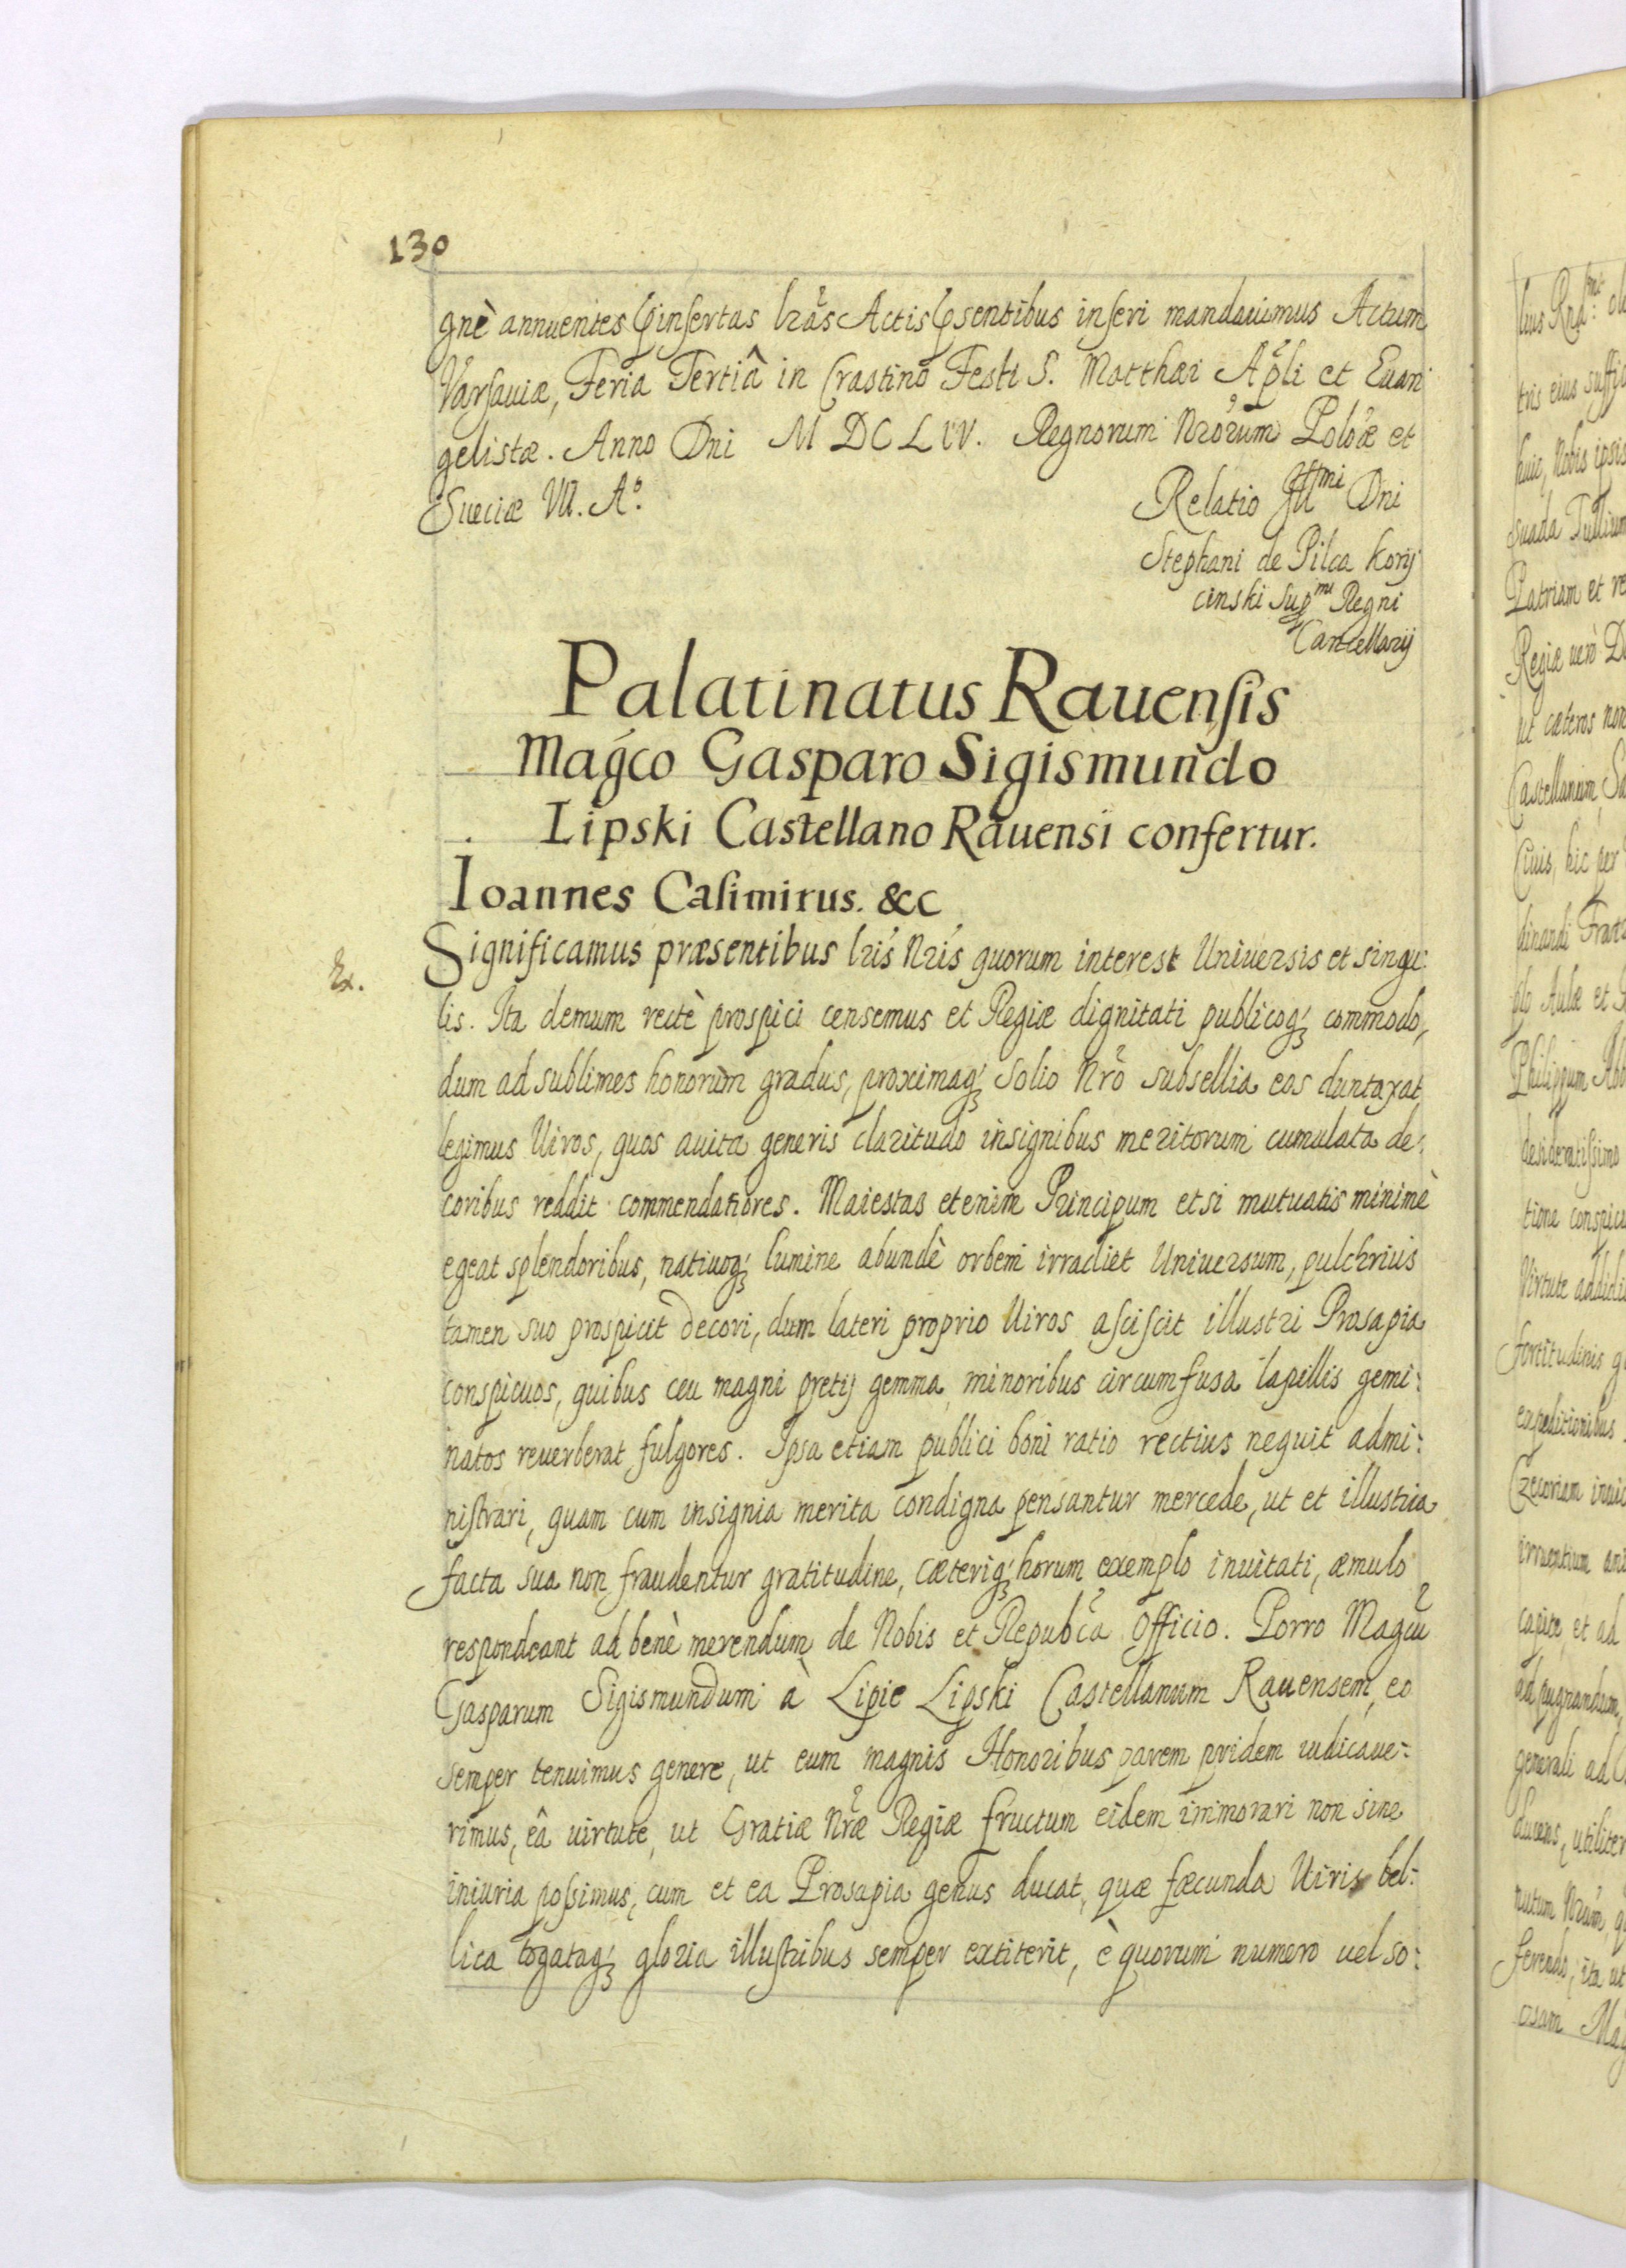 130
gnè annuentes p̃insertas lrãs Actis p̃sentibus inseri mandauimus Actum
Varsauiæ, Feria Tertiâ in Crastino Festi S. Matthæi Apl̃i et Euan
gelistæ. Anno Dni M DC LIV. Regnorum Nrorum Polõæ et
Sueciæ VII. Aº.
Relatio Illmi Dni
Stephani de Pilca Kory
cinski Supmi Regni
Cancellarij
Palatinatus Rauensis
Magco Gasparo Sigismundo
Lipski Castellano Rauensi confertur.
Ioannes Casimirus. &c
Ex.
Significamus præsentibus lris Nris quorum interest Uniuersis et singu:
lis. Ita demum rectè prospici censemus et Regiæ dignitati publicoq́ꝫ commodo,
dum ad sublimes honorum gradus, proximaq́ꝫ Solio Nrõ subsellia eos duntaxat
legimus Uiros, quos auita generis claritudo insignibus meritorum cumulata de:
coribus reddit commendatiores. Maiestas etenim Principum etsi mutuatis minimè
egeat splendoribus, natiuoq́ꝫ lumine abundè orbem irradiet Uniuersum, pulchrius
tamen suo prospicit decori, dum lateri proprio Uiros asciscit illustri Prosapia
conspicuos, quibus ceu magni pretij gemma minoribus circumfusa lapillis gemi:
natos reuerberat fulgores. Ipsa etiam publici boni ratio rectius nequit admi:
nistrari, quam cum insignia merita condigna pensantur mercede, ut et illustria
facta sua non fraudentur gratitudine, cæteriq́ꝫ horum exemplo inuitati, æmulo
respondeant ad benè merendum de Nobis et Repubcã Officio. Porro Magcũ
Gasparum Sigismundum à Lipie Lipski Castellanum Rauensem, eo
semper tenuimus genere, ut eum magnis Honoribus parem pridem iudicaue:
rimus, eâ uirtute, ut Gratiæ Nræ̃ Regiæ fructum eidem immorari non sine
iniuria possimus, cum et ea Prosapia genus ducat, quæ fæcunda Uiris bel:
lica togataq́ꝫ gloria illustribus semper extiterit, è quorum numero uel so: